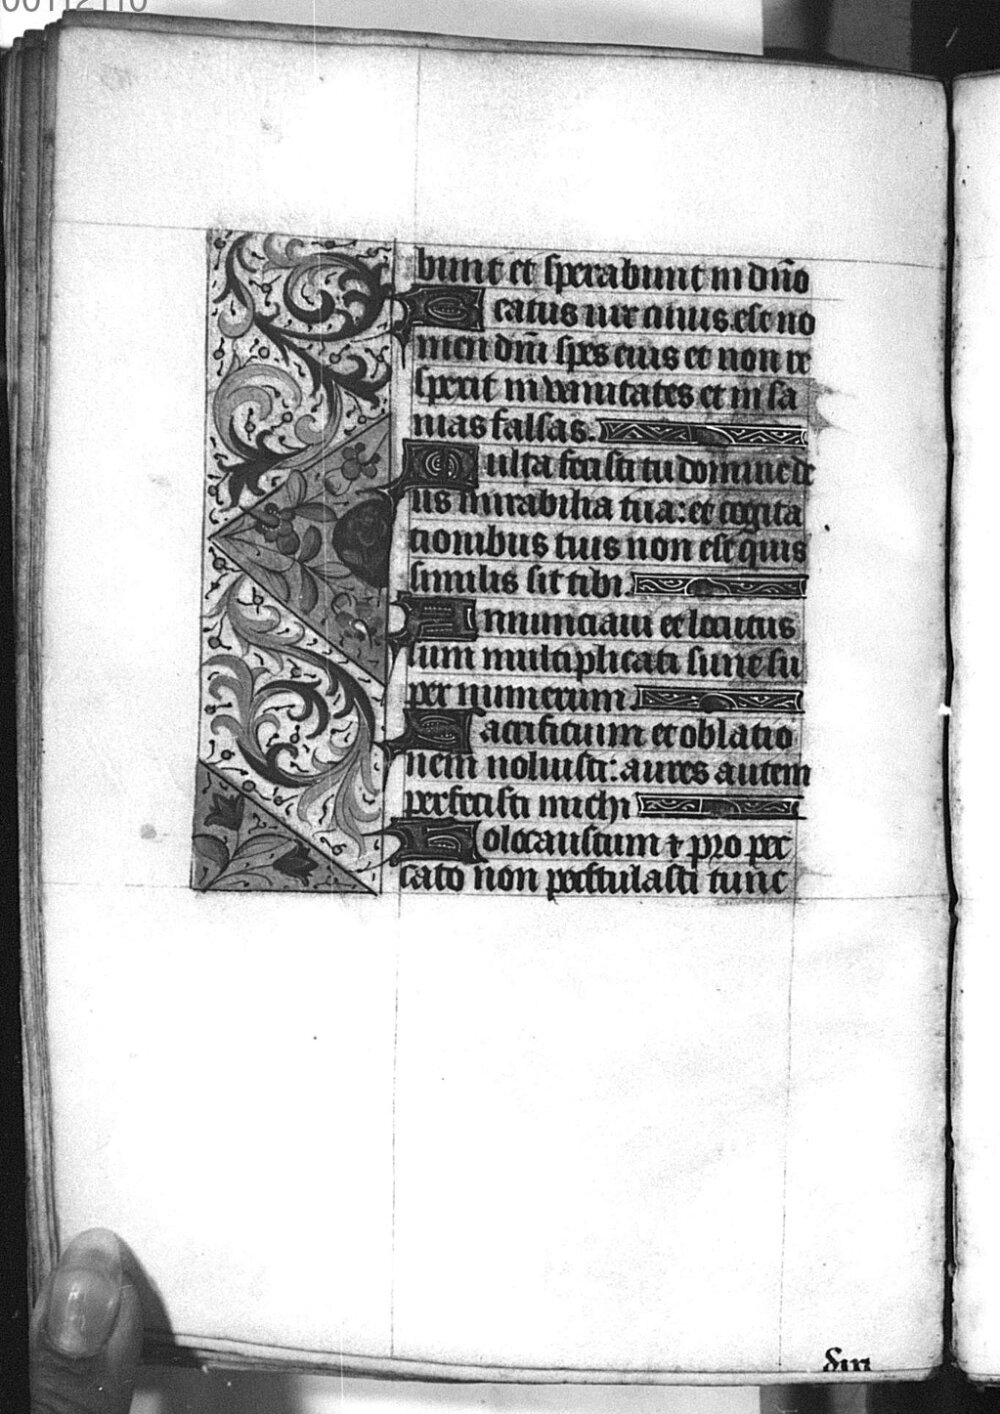 00112110
bunt et sperabunt in dño
Beatus uir cuius est no
men dñi spes eius et non re
spexit in uanitates et in sa
nias falsas.
Multa fecisti tu domine de
us mirabilia tua: et cogita
cionibus tuis non est quis
similis sit tibi.
Annunciaui et locutus
sum multiplicati sunt su
per numerum
Sacrificium et oblatio
nem noluisti: aures autem
perfecisti michi
Holocaustum ⁊ pro pec
cato non postulasti tunc